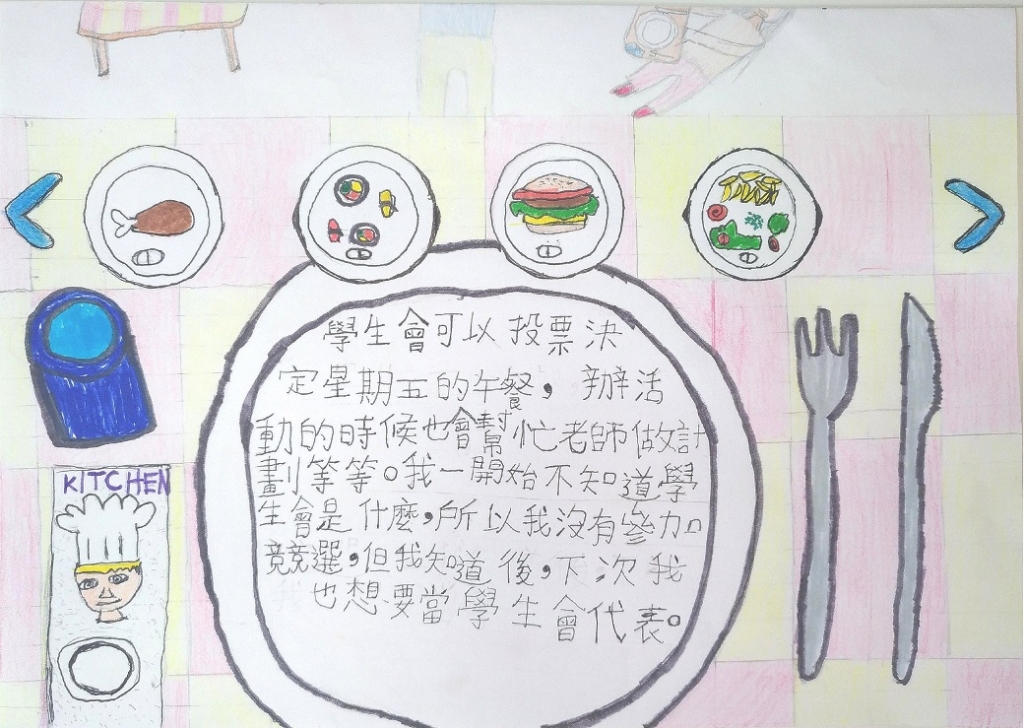 學生會可以投票決
定星期五的午餐,辦活
動的時候也會幫忙老師做計
劃等等。我一開始不知道學
生會是什麼,所以我沒有參加。
競選,但我知道後,下次我
也想要當學生會代表。
KITCHEN